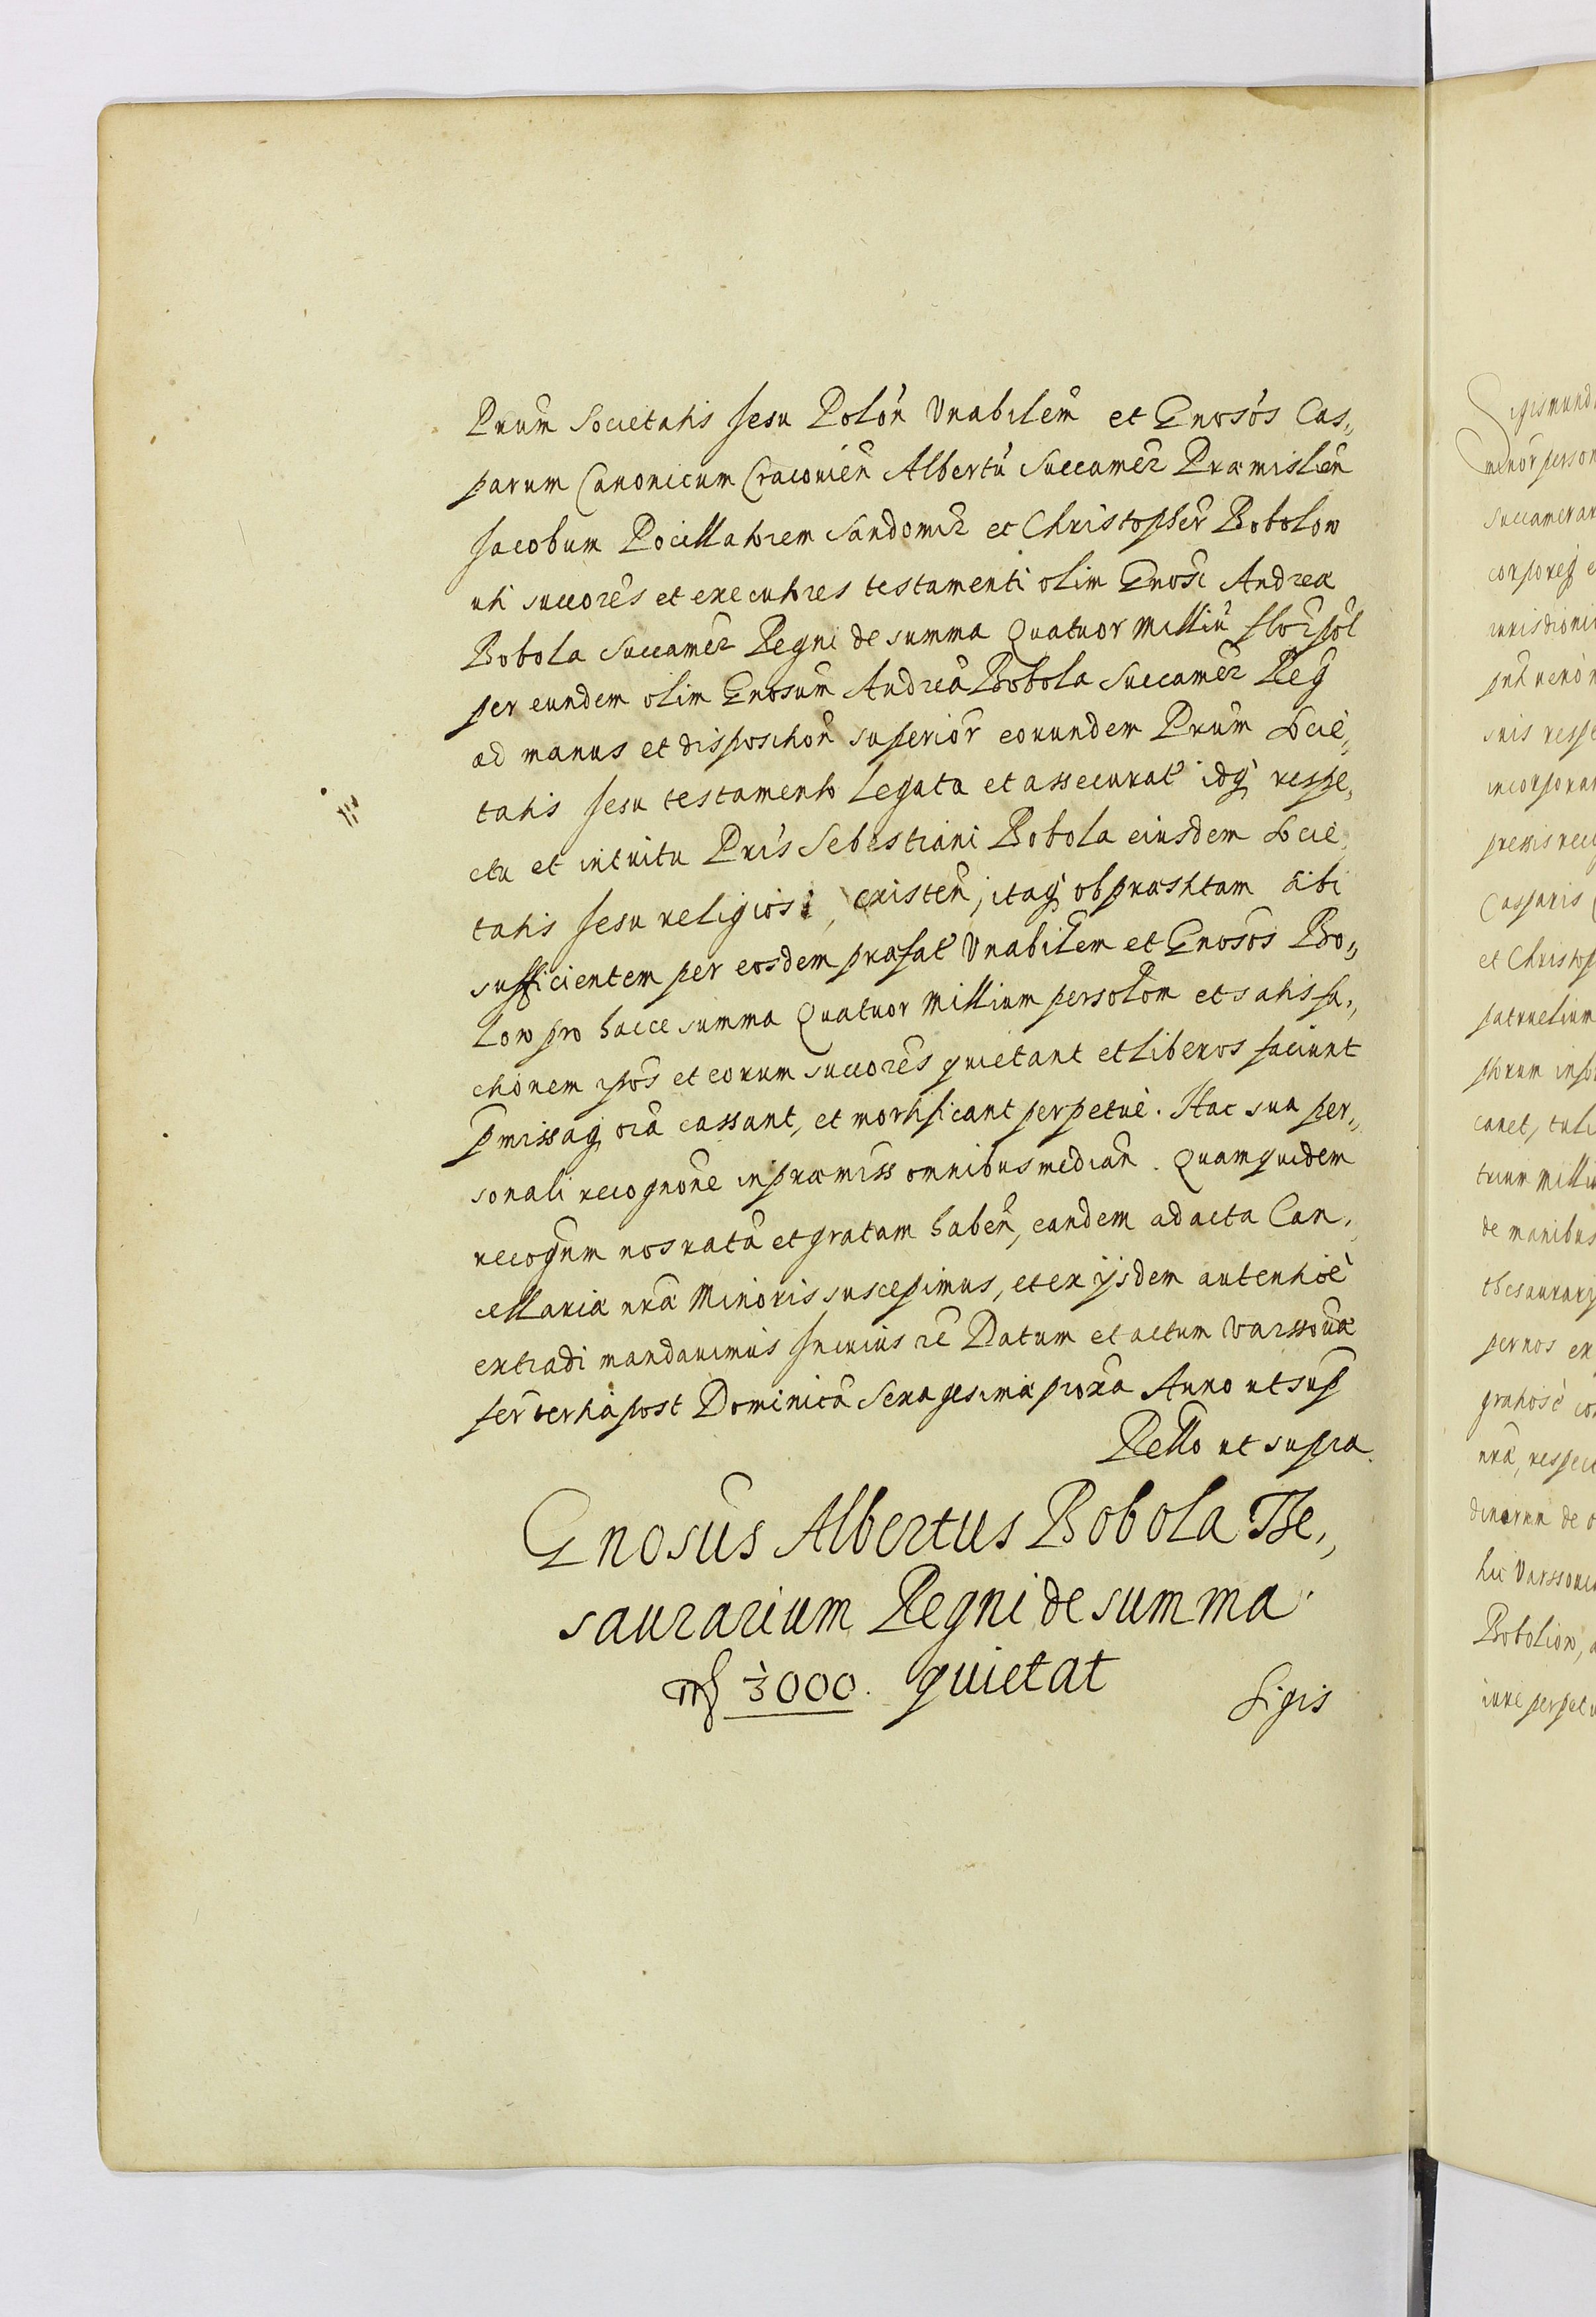 Prum Societatis Jesu Polon Vnabilem et Gnosos Cas„
parum Canonicum Cracouien Albertu Succamer Præmislien
Jacobum Pocillatorem Sandomir et Christopher Bobolow
uti succores et executores testamenti olim Gnosi Andreæ
Bobola Succamer Regni de summa Quatuor Milliu flor pol
per eundem olim Gnosum Andrea Bobola Succamer Reg
ad manus et disposition superior eorundem Prum Socie„
tatis Jesu testamento Legata et assecurat idq respe„
ctu et intuitu Pris Sebastiani Bobola eiusdem Socie„
tatis Jesu religiosi, existen, itaq ob præstitam sibi
sufficientem per eosdem præfat Vnabilem et Gnosos Bo„
Low pro hacce summa Quatuor Millium persolom et satisfa„
ctionem ipos et eorum succores quietant et Liberos faciunt
pmissaq oia cassant, et mortificant perpetuè. Hac sua per„
sonali recognone in præmiss omnibus median. Quam quidem
recognm nos rata et gratam haben, eandem ad acta Can„
cellariæ nræ Minoris suscepimus, et ex ijsdem autenticè
extradi mandauimus In cuius re Datum et actum Varssouiæ
fer tertia post Dominica Sexagesimæ proxa Anno ut sup
Rello ut supra
Gnosus Albertus Bobola The„
saurarium Regni de summa
mf 3000. quietat
Sigis
Sigismund
minor person
Succamerar
corporeq e
iurisdioni
put uero n
suis respe
incorporar
premis reco
Casparis
et Christop
patruelium
ptorum inso
caret, tuli
trium Milliu
de manibus
thesaurary
per nos ex
gratiose co
nra, respect
dinarun de o
hic Varssouiæ
Bobolion, a
iure perpetu